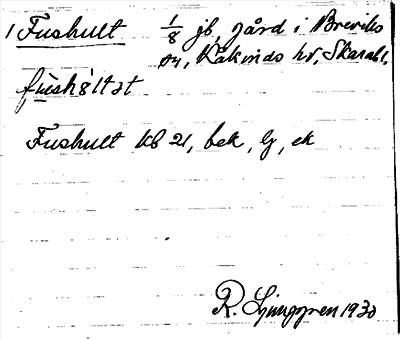 1 Fushult 1/8 jb, gård i Breviks
sn, Kåkinds hd, Skarabl.
fùshö̀ltət
Fushult kb 21, bek, lj, ek
R. Ljunggren 1930